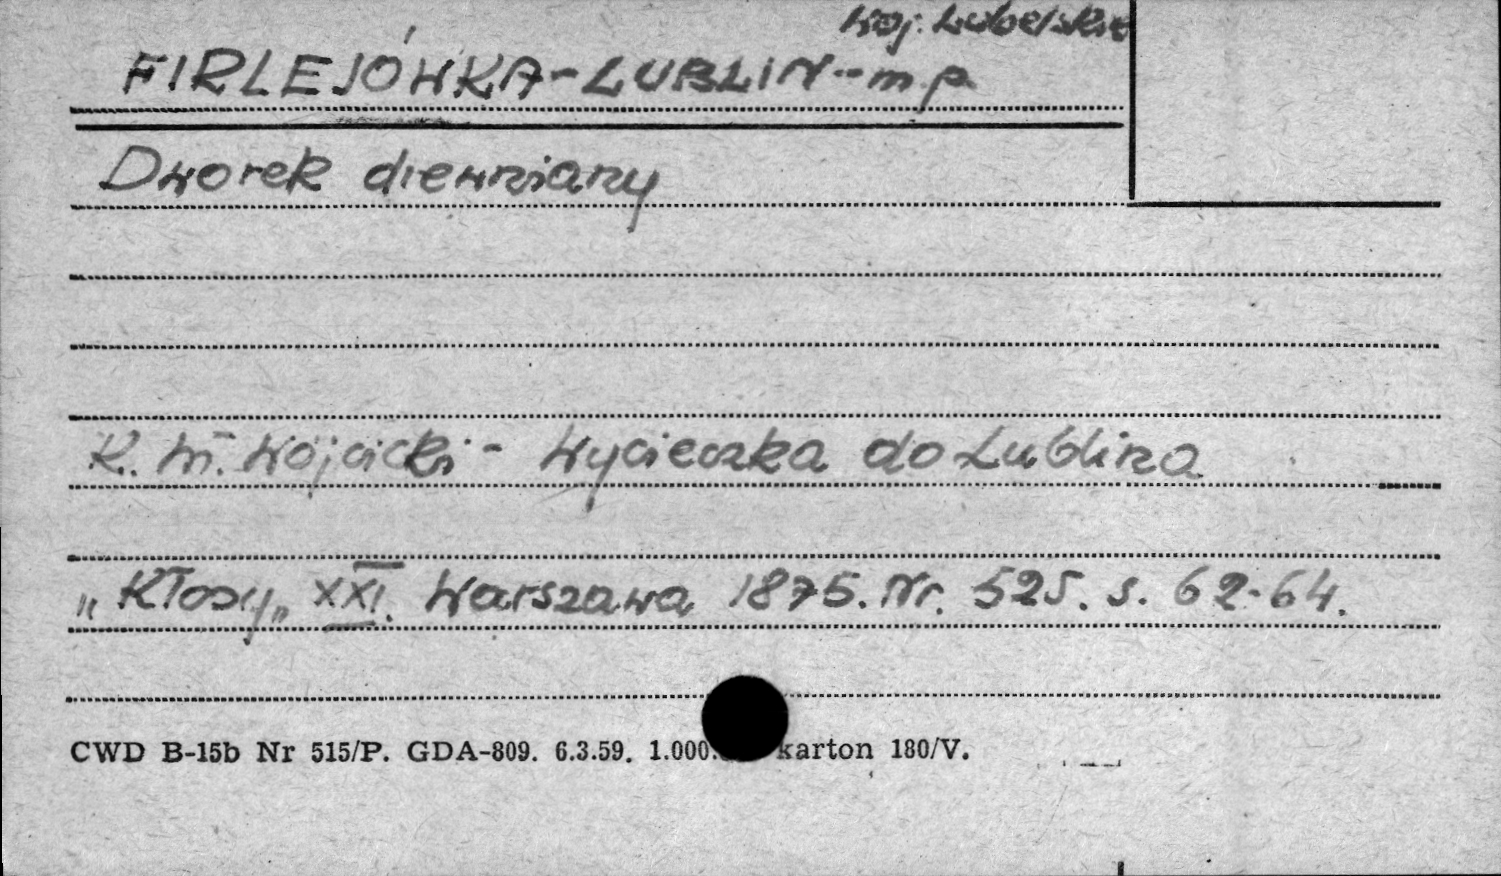 woj. Lubelskie
FIRLEJÓWKA-LUBLIN-m.p.
Dworek drewniany
K. Wł. Wójcicki - Wycieczka do Lublina
„Kłosy„ XXI. Warszawa 1875. Nr. 525. s. 62-64.
CWD B-15b Nr 515/P. GDA-809. 6.3.59. 1.000. karton 180/V.